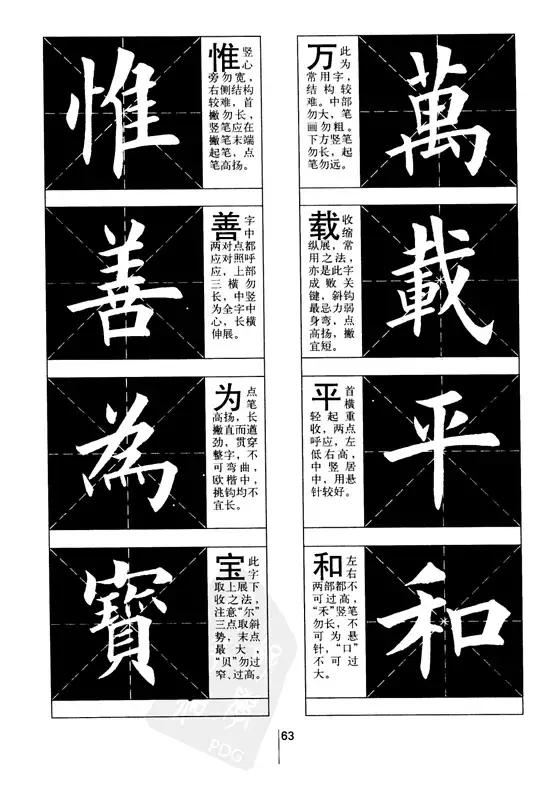 惟
惟 竖心
旁勿宽，
右侧结构
较难，首
撇勿长，
竖笔应在
撇笔末端
起笔，点
笔高扬。
善
善 字中
两对点都
应对照呼
应，上部
三横勿
长，中竖
为全字中
心，长横
伸展。
為
为 点笔
高扬，长
撇直而遒
劲，贯穿
整字，不
可弯曲，
欧楷中，
挑钩均不
宜长。
寶
宝 此字
取上展下
收之法，
注意“尔”
三点取斜
势，末点
最大，
“贝”勿过
窄、过高。
万 此为
常用字，
结构较
难。中部
勿大，笔
画勿粗。
下方竖笔
勿长，起
笔勿远。
萬
载 收缩
纵展，常
用之法，
亦是此字
成败关
键，斜钩
最忌力弱
身弯，点
高扬，撇
宜短。
載
平 首横
轻起重
收，两点
呼应，左
低右高，
中竖居
中，用悬
针较好。
平
和 左右
两部都不
可过高，
“禾”竖笔
勿长，不
可为悬
针，“口”
不可过
大。
和
63
PDG